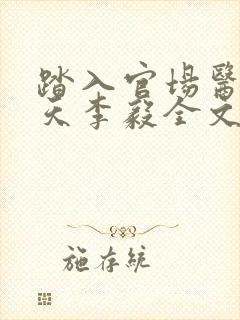 踏入官場醫
天李毅全文
施存統